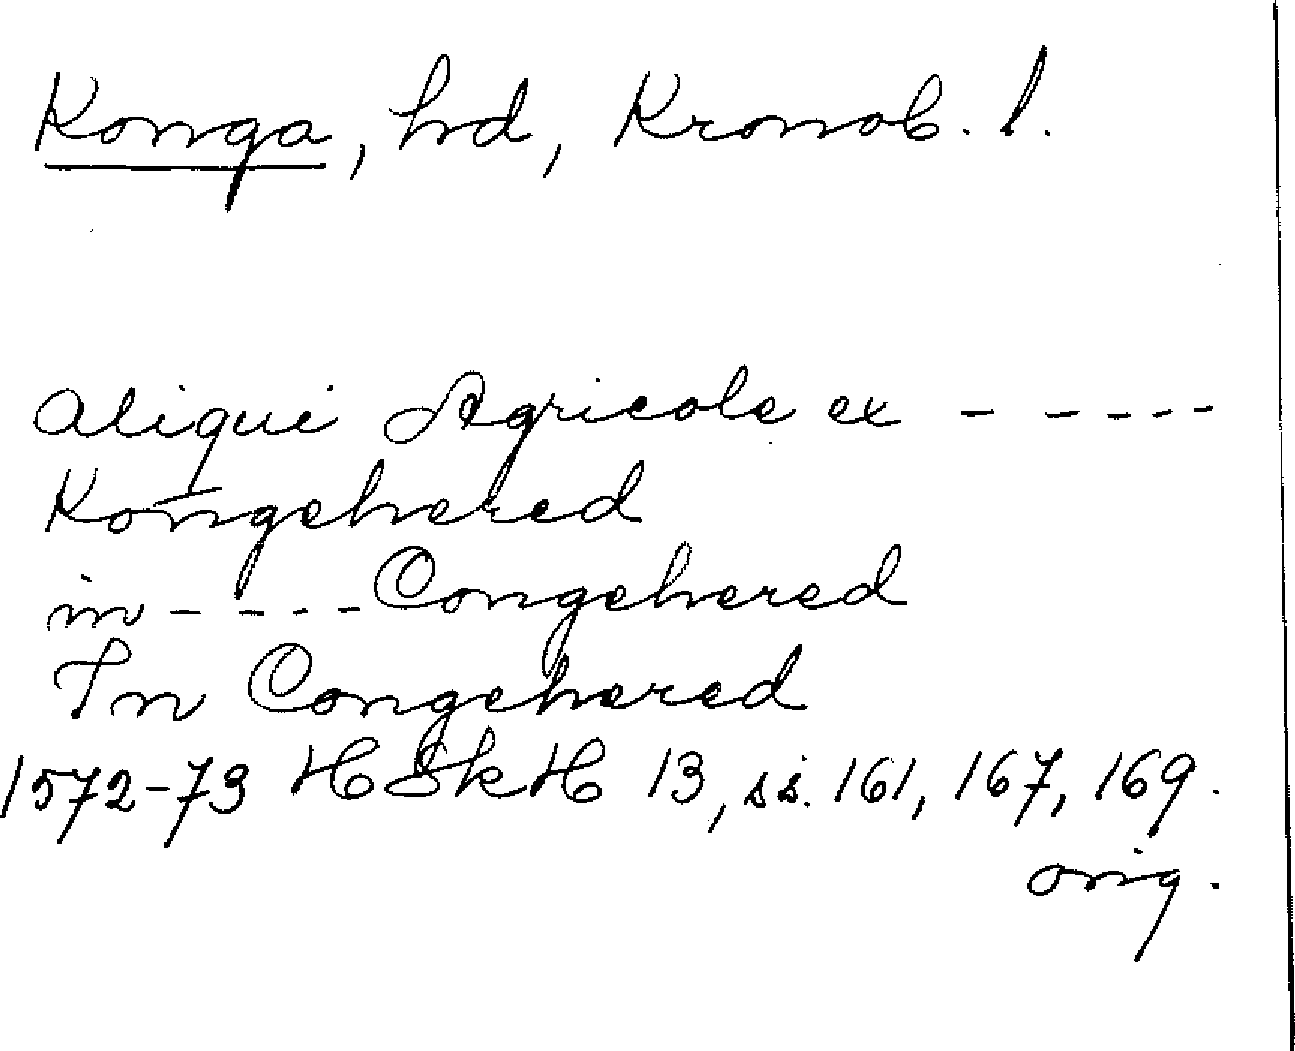 Konga, hd, Kronob. l.
aliqui Agricole ex - - - - - -
Kongehered
in - - - - Congehered
In Congehered
1572-73 HSkH 13, ss. 161, 167, 169.
orig.